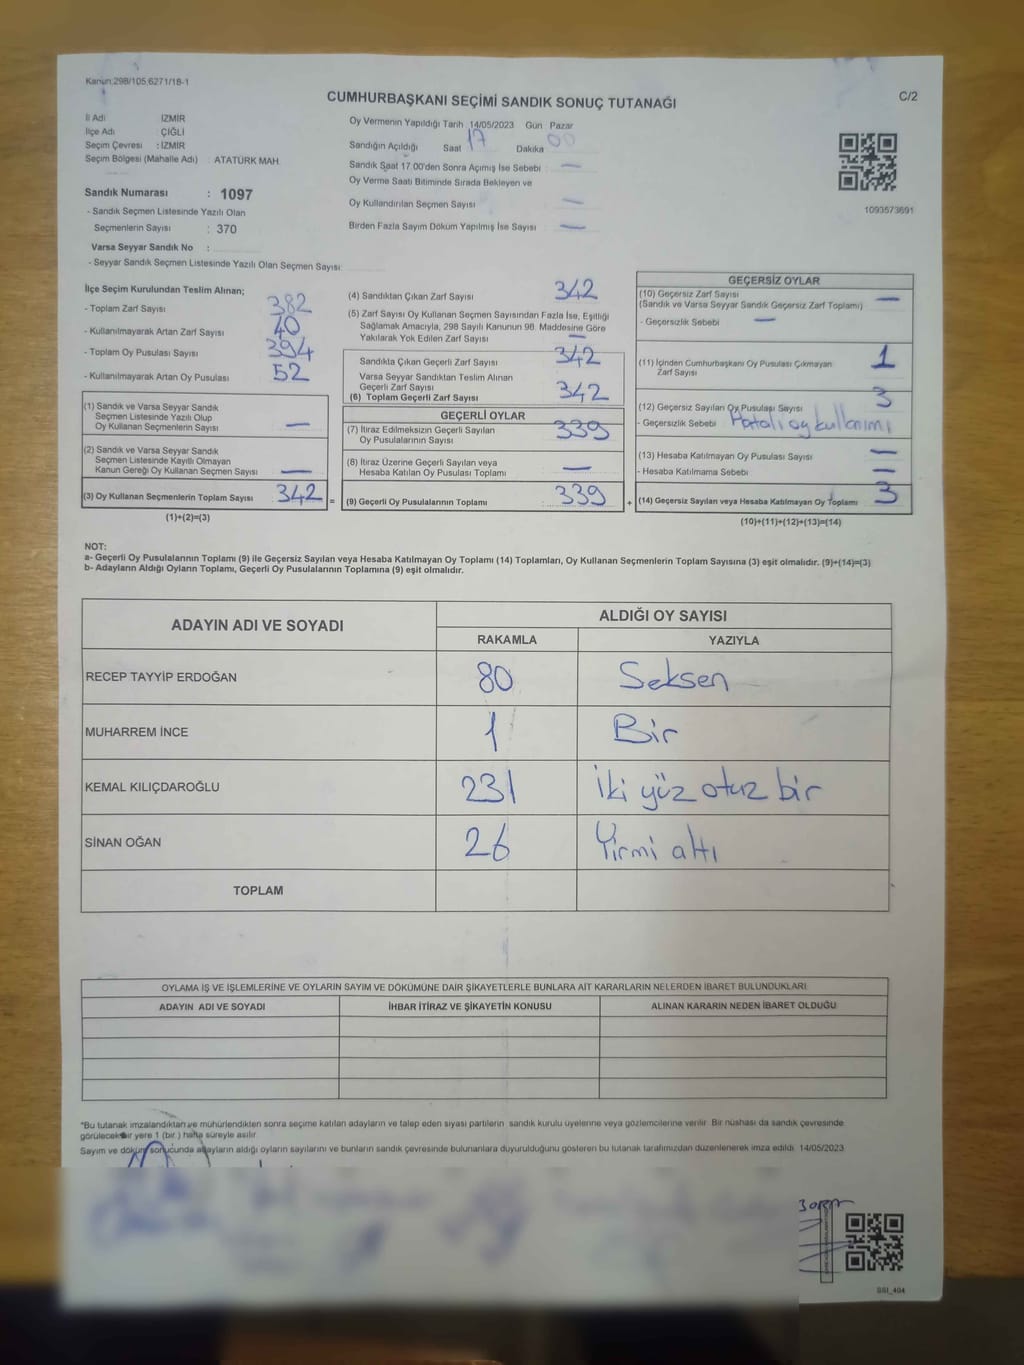 Kanun:298/105,6271/18-1
CUMHURBAŞKANI SEÇİMİ SANDIK SONUÇ TUTANAĞI
C/2
İl Adı İZMİR
İlçe Adı : ÇİĞLİ
Seçim Çevresi : İZMİR
Seçim Bölgesi (Mahalle Adı) : ATATÜRK MAH.
Oy Vermenin Yapıldığı Tarih 14/05/2023 Gün Pazar
Sandığın Açıldığı Saat 17 Dakika 00
Sandık Saat 17.00'den Sonra Açılmış İse Sebebi : —
Oy Verme Saati Bitiminde Sırada Bekleyen ve
Oy Kullandırılan Seçmen Sayısı —
Birden Fazla Sayım Döküm Yapılmış İse Sayısı —
1093573691
Sandık Numarası : 1097
- Sandık Seçmen Listesinde Yazılı Olan
Seçmenlerin Sayısı : 370
Varsa Seyyar Sandık No :
- Seyyar Sandık Seçmen Listesinde Yazılı Olan Seçmen Sayısı:
İlçe Seçim Kurulundan Teslim Alınan;
- Toplam Zarf Sayısı 382
- Kullanılmayarak Artan Zarf Sayısı 40
- Toplam Oy Pusulası Sayısı 394
- Kullanılmayarak Artan Oy Pusulası 52
(1) Sandık ve Varsa Seyyar Sandık
Seçmen Listesinde Yazılı Olup
Oy Kullanan Seçmenlerin Sayısı —
(2) Sandık ve Varsa Seyyar Sandık
Seçmen Listesinde Kayıtlı Olmayan
Kanun Gereği Oy Kullanan Seçmen Sayısı —
(3) Oy Kullanan Seçmenlerin Toplam Sayısı 342 =
(1)+(2)=(3)
(4) Sandıktan Çıkan Zarf Sayısı 342
(5) Zarf Sayısı Oy Kullanan Seçmen Sayısından Fazla İse, Eşitliği
Sağlamak Amacıyla, 298 Sayılı Kanunun 98. Maddesine Göre
Yakılarak Yok Edilen Zarf Sayısı —
Sandıkta Çıkan Geçerli Zarf Sayısı 342
Varsa Seyyar Sandıktan Teslim Alınan
Geçerli Zarf Sayısı
(6) Toplam Geçerli Zarf Sayısı 342
GEÇERLİ OYLAR
(7) İtiraz Edilmeksizin Geçerli Sayılan
Oy Pusulalarının Sayısı 339
(8) İtiraz Üzerine Geçerli Sayılan veya
Hesaba Katılan Oy Pusulası Toplamı —
(9) Geçerli Oy Pusulalarının Toplamı 339 +
GEÇERSİZ OYLAR
(10) Geçersiz Zarf Sayısı —
(Sandık ve Varsa Seyyar Sandık Geçersiz Zarf Toplamı)
- Geçersizlik Sebebi —
(11) İçinden Cumhurbaşkanı Oy Pusulası Çıkmayan
Zarf Sayısı 1
(12) Geçersiz Sayılan Oy Pusulası Sayısı 3
- Geçersizlik Sebebi Hatalı oy kullanımı
(13) Hesaba Katılmayan Oy Pusulası Sayısı —
- Hesaba Katılmama Sebebi —
(14) Geçersiz Sayılan veya Hesaba Katılmayan Oy Toplamı 3
(10)+(11)+(12)+(13)=(14)
NOT:
a- Geçerli Oy Pusulalarının Toplamı (9) ile Geçersiz Sayılan veya Hesaba Katılmayan Oy Toplamı (14) Toplamları, Oy Kullanan Seçmenlerin Toplam Sayısına (3) eşit olmalıdır. (9)+(14)=(3)
b- Adayların Aldığı Oyların Toplamı, Geçerli Oy Pusulalarının Toplamına (9) eşit olmalıdır.
ADAYIN ADI VE SOYADI
ALDIĞI OY SAYISI
RAKAMLA YAZIYLA
RECEP TAYYİP ERDOĞAN 80 Seksen
MUHARREM İNCE 1 Bir
KEMAL KILIÇDAROĞLU 231 İki yüz otuz bir
SİNAN OĞAN 26 Yirmi altı
TOPLAM
OYLAMA İŞ VE İŞLEMLERİNE VE OYLARIN SAYIM VE DÖKÜMÜNE DAİR ŞİKAYETLERLE BUNLARA AİT KARARLARIN NELERDEN İBARET BULUNDUKLARI
ADAYIN ADI VE SOYADI İHBAR İTİRAZ VE ŞİKAYETİN KONUSU ALINAN KARARIN NEDEN İBARET OLDUĞU
*Bu tutanak imzalandıktan ve mühürlendikten sonra seçime katılan adayların ve talep eden siyasi partilerin sandık kurulu üyelerine veya gözlemcilerine verilir. Bir nüshası da sandık çevresinde
görülecek bir yere 1 (bir ) hafta süreyle asılır.
Sayım ve döküm sonucunda adayların aldığı oyların sayılarını ve bunların sandık çevresinde bulunanlara duyurulduğunu gösteren bu tutanak tarafımızdan düzenlenerek imza edildi. 14/05/2023